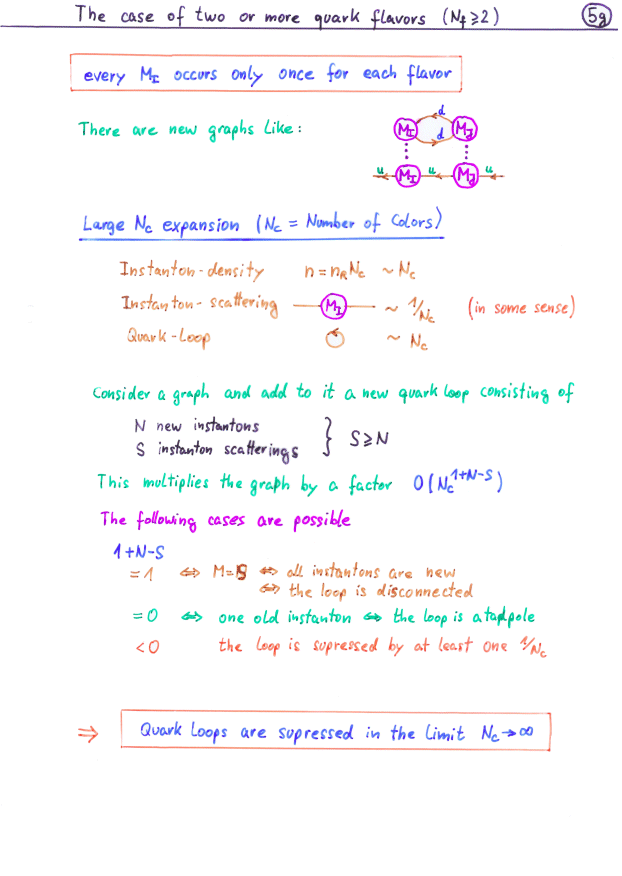 The case of two or more quark flavors (N_f ≥ 2) 5g
every M_I occurs only once for each flavor
There are new graphs like:
d
M_I d M_J
u M_I u M_J u
Large N_c expansion (N_c = Number of Colors)
Instanton-density n = n_R N_c ~ N_c
Instanton-scattering M_I ~ 1/N_c (in some sense)
Quark-Loop ~ N_c
Consider a graph and add to it a new quark loop consisting of
N new instantons
S instanton scatterings } S ≥ N
This multiplies the graph by a factor O(N_c^{1+N-S})
The following cases are possible
1+N-S
= 1 ⇔ M=S ⇔ all instantons are new
⇔ the loop is disconnected
= 0 ⇔ one old instanton ⇔ the loop is a tadpole
< 0 the loop is supressed by at least one 1/N_c
⇒ Quark Loops are supressed in the limit N_c → ∞